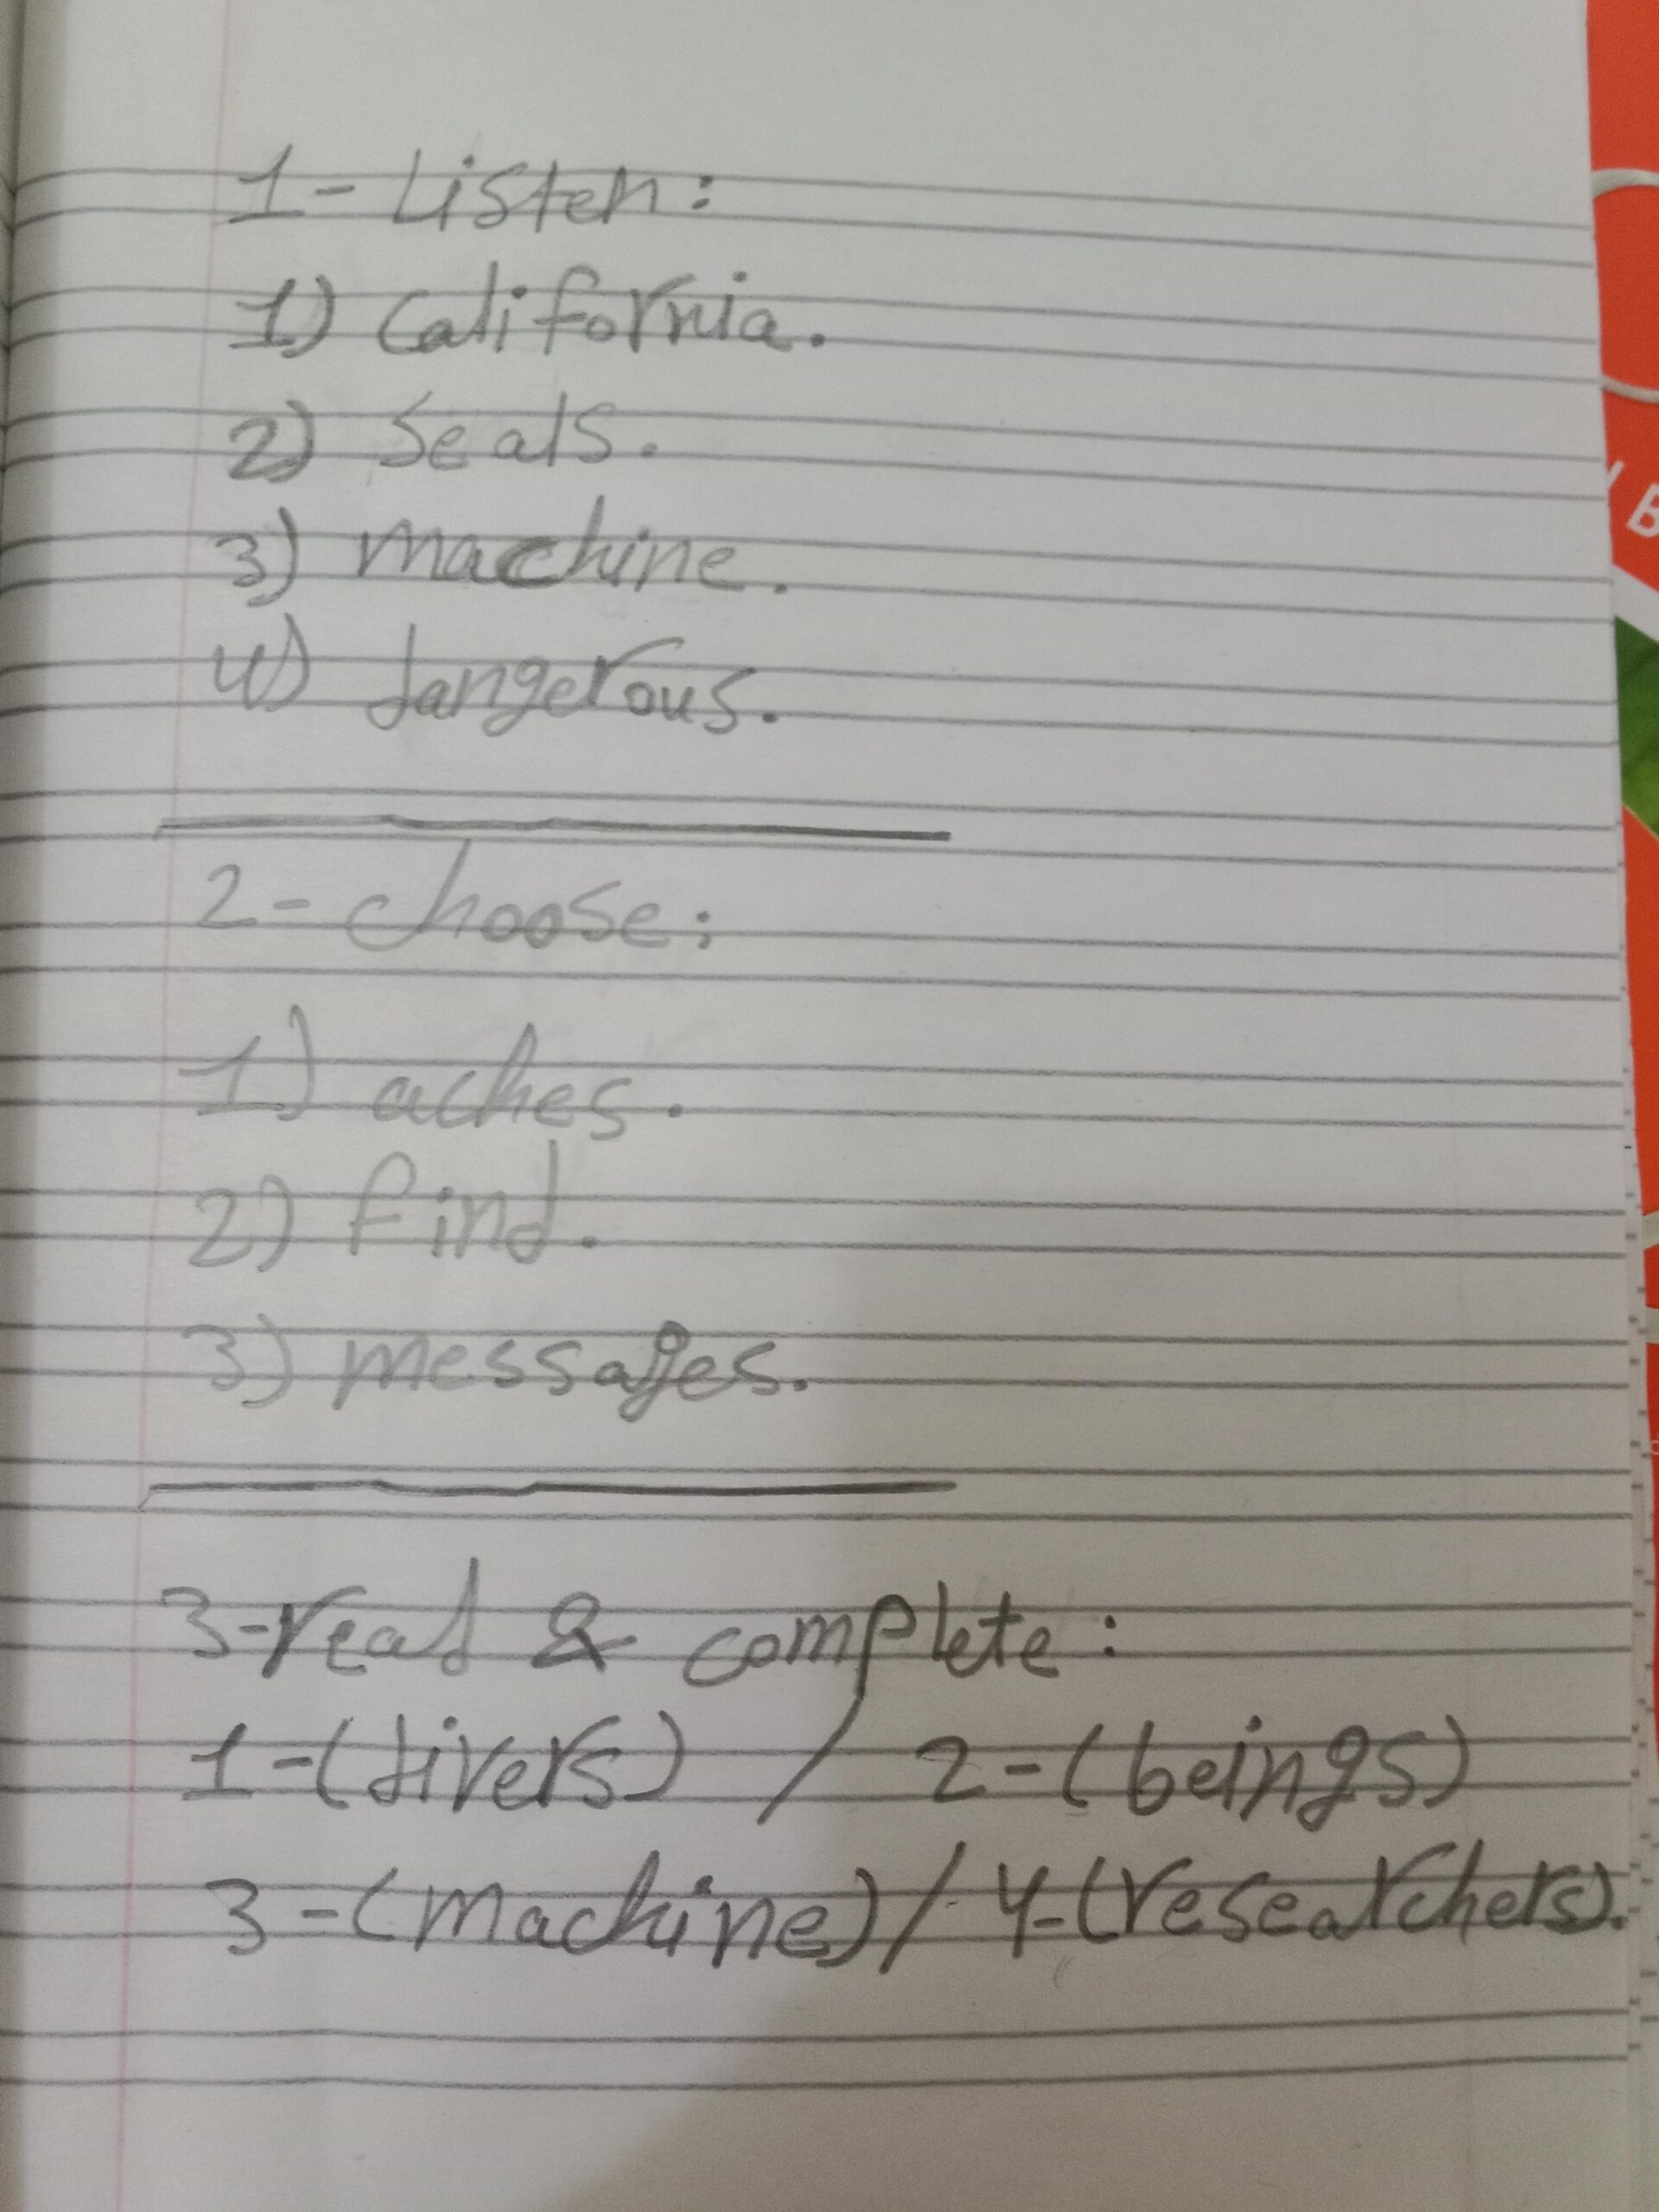 1- Listen:
1) California.
2) Seals.
3) machine.
4) dangerous.
2- choose:
1) aches.
2) find.
3) messages.
3- read & complete:
1-(divers) / 2-(beings)
3-(machine) / 4-(researchers).
B